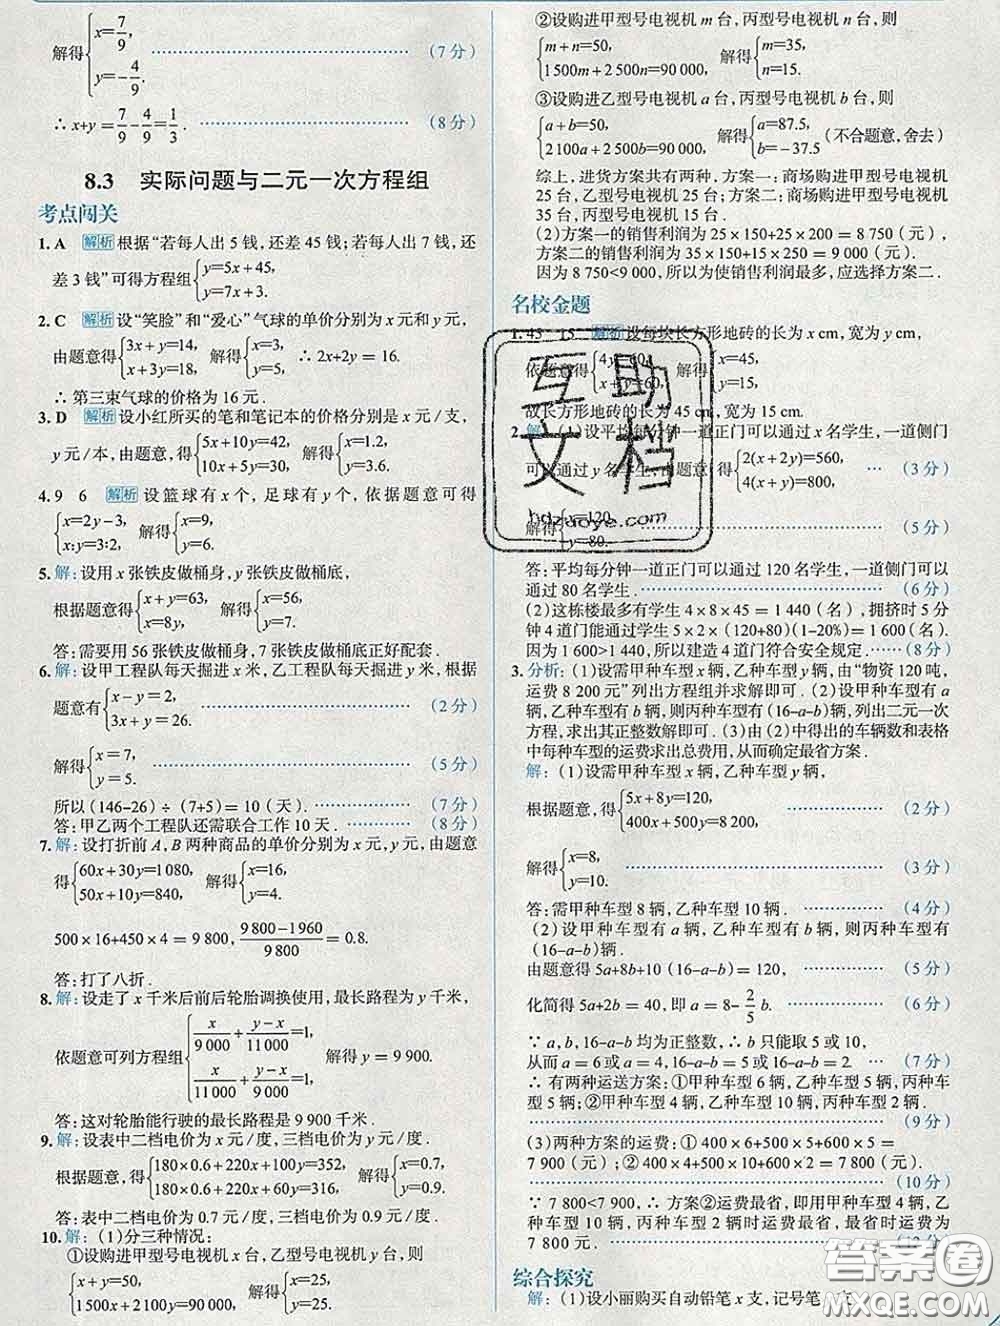 解得{x=7/9, y=-4/9. ……(7分)
∴ x+y=7/9-4/9=1/3. ……(8分)
8.3 实际问题与二元一次方程组
考点闯关
1. A 解析 根据“若每人出5钱,还差45钱;若每人出7钱,还
差3钱”可得方程组{y=5x+45, y=7x+3.
2. C 解析 设“笑脸”和“爱心”气球的单价分别为x元和y元,
由题意得{3x+y=14, x+3y=18, 解得{x=3, y=5, ∴ 2x+2y=16.
∴ 第三束气球的价格为16元.
3. D 解析 设小红所买的笔和笔记本的价格分别是x元/支,
y元/本,由题意,得{5x+10y=42, 10x+5y=30, 解得{x=1.2, y=3.6.
4. 9 6 解析 设篮球有x个,足球有y个,依据题意可得
{x=2y-3, x:y=3:2, 解得{x=9, y=6.
5. 解:设用x张铁皮做桶身,y张铁皮做桶底,
根据题意得{x+y=63, x=8y, 解得{x=56, y=7.
答:需要用56张铁皮做桶身,7张铁皮做桶底正好配套.
6. 解:设甲工程队每天掘进x米,乙工程队每天掘进y米,根据
题意有{x-y=2, 3x+y=26. ……(2分)
解得{x=7, y=5. ……(5分)
所以(146-26)÷(7+5)=10(天). ……(7分)
答:甲乙两个工程队还需联合工作10天. ……(8分)
7. 解:设打折前A,B两种商品的单价分别为x元,y元,由题意
得{60x+30y=1 080, 50x+10y=840, 解得{x=16, y=4.
500×16+450×4=9 800, (9 800-1 960)/9 800=0.8.
答:打了八折.
8. 解:设走了x千米后前后轮胎调换使用,最长路程为y千米,
依题意可列方程组{x/9 000+(y-x)/11 000=1, x/11 000+(y-x)/9 000=1, 解得y=9 900.
答:这对轮胎能行驶的最长路程是9 900千米.
9. 解:设表中二档电价为x元/度,三档电价为y元/度.
根据题意,得{180×0.6+220x+100y=352, 180×0.6+220x+60y=316, 解得{x=0.7, y=0.9.
答:表中二档电价为0.7元/度,三档电价为0.9元/度.
10. 解:(1)分三种情况:
①设购进甲型号电视机x台,乙型号电视机y台,则
{x+y=50, 1500x+2100y=90 000, 解得{x=25, y=25.
②设购进甲型号电视机m台,丙型号电视机n台,则
{m+n=50, 1 500m+2 500n=90 000, 解得{m=35, n=15.
③设购进乙型号电视机a台,丙型号电视机b台,则
{a+b=50, 2 100a+2 500b=90 000, 解得{a=87.5, b=-37.5. (不合题意,舍去)
综上,进货方案共有两种,方案一:商场购进甲型号电视机
25台,乙型号电视机25台;方案二:商场购进甲型号电视机
35台,丙型号电视机15台.
(2)方案一的销售利润为25×150+25×200=8 750(元),
方案二的销售利润为35×150+15×250=9 000(元).
因为8 750<9 000,所以为使销售利润最多,应选择方案二.
名校金题
1. 45 15 解析 设每块长方形地砖的长为x cm,宽为y cm,
依题意得{4y=60, x+y=60, 解得{x=45, y=15,
故长方形地砖的长为45 cm,宽为15 cm.
2. 解:(1)设平均每分钟一道正门可以通过x名学生,一道侧门
可以通过y名学生,由题意得{2(x+2y)=560, 4(x+y)=800, …(3分)
解得{x=120, y=80. ……(5分)
答:平均每分钟一道正门可以通过120名学生,一道侧门可以
通过80名学生. ……(6分)
(2)这栋楼最多有学生4×8×45=1 440(名),拥挤时5分
钟4道门能通过学生5×2×(120+80)(1-20%)=1 600(名),
因为1 600>1 440,所以建造4道门符合安全规定. ……(8分)
3. 分析:(1)设需甲种车型x辆,乙种车型y辆,由“物资120吨,
运费8 200元”列出方程组并求解即可.(2)设甲种车型有a
辆,乙种车型有b辆,则丙种车型有(16-a-b)辆,列出二元一次
方程,求出其正整数解即可.(3)由(2)中得出的车辆数和表格
中每种车型的运费求出总费用,从而确定最省方案.
解:(1)设需甲种车型x辆,乙种车型y辆,
根据题意,得{5x+8y=120, 400x+500y=8 200, ……(2分)
解得{x=8, y=10. ……(3分)
答:需甲种车型8辆,乙种车型10辆. ……(4分)
(2)设甲种车型有a辆,乙种车型有b辆,则丙种车型有
(16-a-b)辆.
由题意得5a+8b+10(16-a-b)=120, ……(5分)
化简得5a+2b=40,即a=8-2/5 b. ……(6分)
∵ a,b,16-a-b均为正整数,∴ b只能取5或10,
从而a=6或a=4,16-a-b=5或16-a-b=2. …(7分)
∴ 有两种运送方案:①甲种车型6辆,乙种车型5辆,丙种车
型5辆;②甲种车型4辆,乙种车型10辆,丙种车型2辆.
……(9分)
(3)两种方案的运费:①400×6+500×5+600×5=
7 900(元);②400×4+500×10+600×2=7 800(元).
……(10分)
∵ 7 800<7 900,∴ 方案②运费最省,即用甲种车型4辆,乙种
车型10辆,丙种车型2辆时运费最省,最省时运费为
7 800元. ……
综合探究
解:(1)设小丽购买自动铅笔x支,记号笔y支
互助文档
hdzuoye.com
答案圈
MXQE.COM